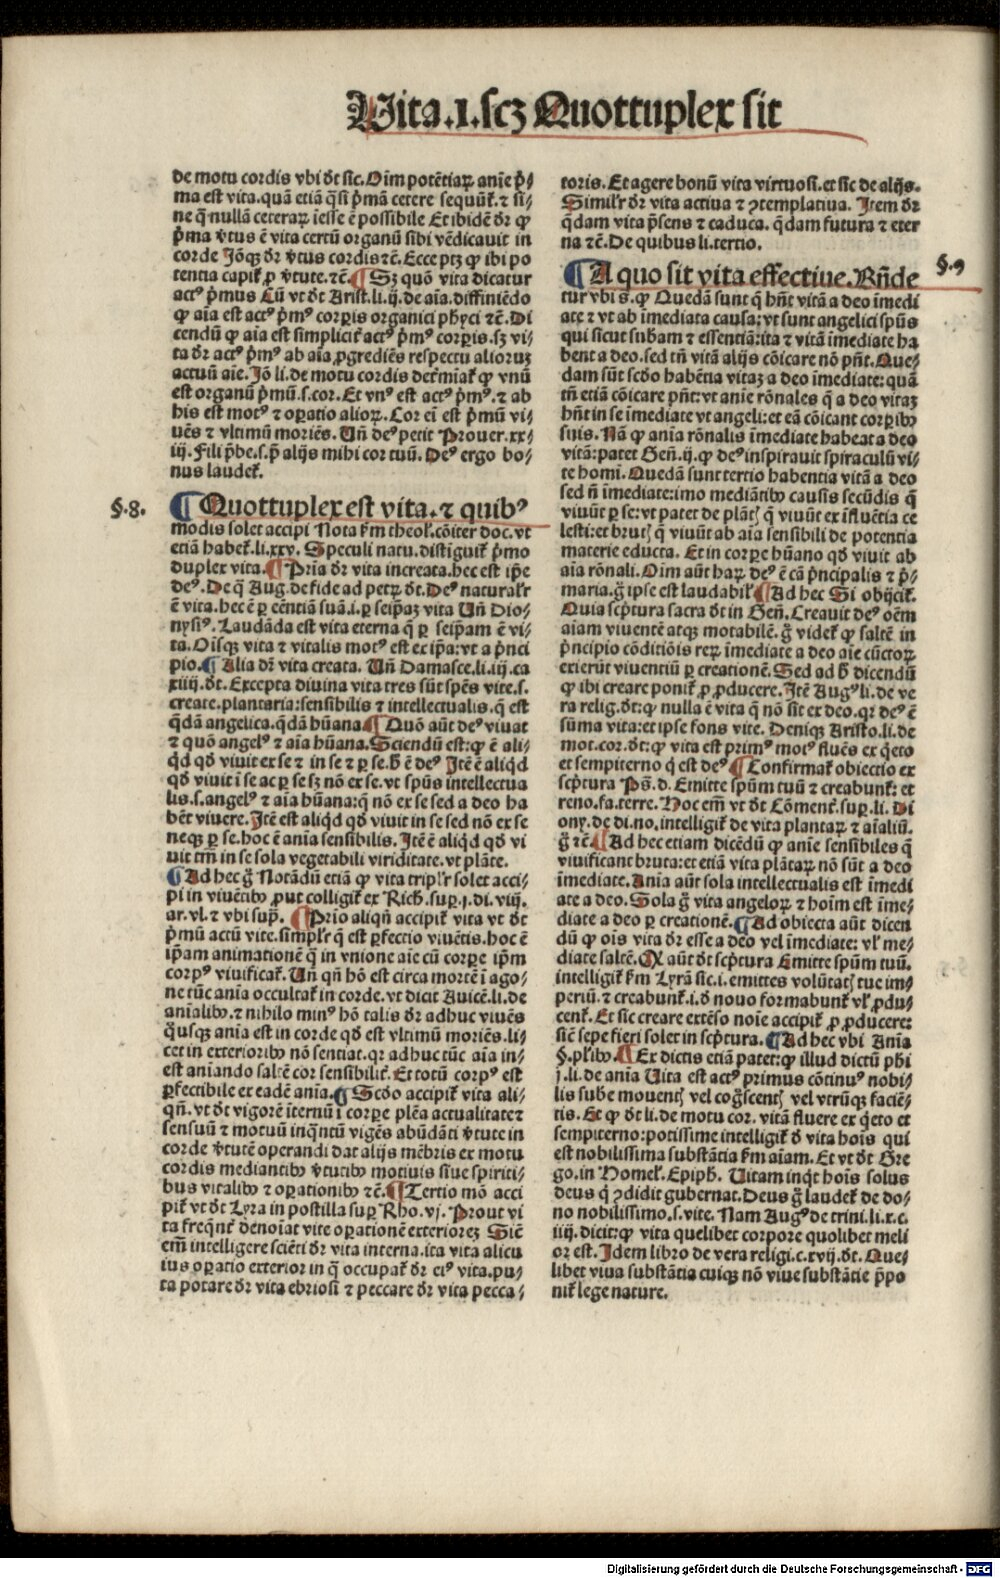 Vita.I.scꝫ Quottuplex sit
de motu cordis vbi dt sic. Oim̄ potētiaꝝ anīe p̄-
ma est vita. quā etiā q̄si p̄mā cetere sequūt᷑. ⁊ si-
ne q̄ nullā ceteraꝝ īesse ē possibile Et ibidē dr̄ ꝙ
p̄ma v̄tus ē vita certū organū sibi vēdicauit in
corde Jōqꝫ dr̄ v̄tus cordis ⁊c̄. Ecce ptꝫ ꝙ ibi po
tentia capit᷑ ꝓ v̄tute. ⁊c̄. ¶ Sꝫ quō vita dicatur
actꝰ p̄mus Cū vt dt Arist. li. ij. de aīa. diffiniēdo
ꝙ aīa est actꝰ p̄mꝰ corꝑis organici phyci ⁊c̄. Di
cendū ꝙ aīa est simplicit᷑ actꝰ p̄mꝰ corꝑis. sꝫ vi-
ta dr̄ actꝰ p̄mꝰ ab aīa ꝓgrediēs respectu alioruꝫ
actuū aīe. Jō li. de motu cordis det᷑miat᷑ ꝙ vnū
est organū p̄mū. s. cor. Et vnꝰ est actꝰ p̄mꝰ. ⁊ ab
his est motꝰ ⁊ oꝑatio alioꝝ. Cor eī est p̄mū vi-
uēs ⁊ vltimū moriēs. Un̄ deꝰ petit Prouer. xx-
iij. Fili p̄be. s. p̄ alijs mihi cor tuū. Deꝰ ergo bo-
nus laudet᷑.
§.8.
¶ Quottuplex est vita. ⁊ quibꝰ
modis solet accipi Nota ẜm theol᷑. cōiter doc. vt
etiā habet᷑. li. xxv. Speculi natu. distīguit᷑ p̄mo
duplex vita. ¶ Pria dr̄ vita increata. hec est ip̄e
deꝰ. De q̄ Aug. de fide ad petꝝ dt. Deꝰ naturalr̄
ē vita. hec ē ꝑ eēntiā suā. i. ꝑ seip̄aꝫ vita Un̄ Dio-
nysiꝰ. Laudāda est vita eterna q̄ ꝑ seip̄am ē vi-
ta. Oīsqꝫ vita ⁊ vitalis motꝰ est ex ip̄a: vt a p̄nci
pio. ¶ Alia dr̄ vita creata. Un̄ Damasce. li. iij. ca
xiiij. dt. Excepta diuina vita tres sūt spēs vite. s.
create. plantaria: sensibilis ⁊ intellectualis. q̄ est
q̄dā angelica. q̄dā hūana ¶ Quō aūt deꝰ viuat
⁊ quō angelꝰ ⁊ aīa hūana. Sciendū est: ꝙ ē ali-
q̄d qd̄ viuit ex se ⁊ in se ⁊ ꝑ se. h̄ ē deꝰ Jtē ē aliq̄d
qd̄ viuit ī se ac ꝑ se sꝫ nō ex se. vt spūs intellectua
lis. s. angelꝰ ⁊ aīa hūana: q̄ nō ex se sed a deo ha
bēt viuere. Jtē est aliq̄d qd̄ viuit in se sed nō ex se
neqꝫ ꝑ se. hoc ē anīa sensibilis. Jtē ē aliq̄d qd̄ vi
uit tm̄ in se sola vegetabili viriditate. vt plāte.
¶ Ad hec g̊ Notādū etiā ꝙ vita triplr̄ solet acci-
pi in viuētibꝰ ꝓut colligit᷑ ex Rich. suꝑ. j. di. viij.
ar. vl. ⁊ vbi sup̄. ¶ Prīo aliqn̄ accipit᷑ vita vt dt
p̄mū actū vite. simplr̄ q̄ est ꝑfectio viuētis. hoc ē
ip̄am animationē q̄ in vnione aīe cū corꝑe ip̄m
corpꝰ viuificat᷑. Un̄ qn̄ hō est circa mortē ī ago-
ne tūc anīa occultat᷑ in corde. vt dicit Auicē. li. de
anīalibꝰ. ⁊ nihilo minꝰ hō talis dr̄ adhuc viuēs
q̄usqꝫ anīa est in corde qd̄ est vltimū moriēs. li-
cet in exteriorībꝰ nō sentiat. qr adhuc tūc aīa in-
est aniando saltē cor sensibilit᷑. Et totū corpꝰ est
ꝑfectibile ex eadē anīa. ¶ Scd̄o accipit᷑ vita ali-
qn̄. vt dt vigorē īternū ī corꝑe plēa actualitate ⁊
sensuū ⁊ motuū inq̄ntū vigēs abūdāti v̄tute in
corde v̄tutē operandi dat alijs mēbris ex motu
cordis mediantibꝰ v̄tutibꝰ motiuis siue spiriti-
bus vitalibꝰ ⁊ oꝑationibꝰ ⁊c̄. ¶ Tertio mō acci
pit᷑ vt dt Lyra in postilla suꝑ Rho. vj. Prout vi
ta freq̄nt᷑ denoīat vite oꝑationē exterioreꝫ Sic̄
em̄ intelligere sciēti dr̄ vita interna. ita vita alicu
ius oꝑatio exterior in q̄ occupat᷑ dr̄ eiꝰ vita. pu-
ta potare dr̄ vita ebriosi ⁊ peccare dr̄ vita pecca-
toris. Et agere bonū vita virtuosi. et sic de alijs.
Similr̄ dr̄ vita actiua ⁊ ꝯtemplatiua. Jtem dr̄
q̄dam vita p̄sens ⁊ caduca. q̄dam futura ⁊ eter
na ⁊c̄. De quibus li. tertio.
§.9
¶ A quo sit vita effectiue. Rn̄de
tur vbi s. ꝙ Quedā sunt q̄ hn̄t vitā a deo īmedi
ate ⁊ vt ab īmediata causa: vt sunt angelici spūs
qui sicut subam ⁊ essentiā: ita ⁊ vitā īmediate ha
bent a deo. sed tn̄ vitā alijs cōicare nō pn̄t. Que-
dam sūt scd̄o habētia vitaꝫ a deo īmediate: quā
tn̄ etiā cōicare pn̄t: vt anīe rōnales q̄ a deo vitaꝫ
hn̄t in se īmediate vt angeli: et eā cōicant corꝑibꝰ
suis. Nā ꝙ anīa rōnalis īmediate habeat a deo
vitā: patet Gen̄. ij. ꝙ deꝰ inspirauit spiraculū vi-
te homī. Quedā sunt tertio habentia vitā a deo
sed n̄ īmediate: imo mediātibꝰ causis secūdis q̄
viuūt ꝑ se: vt patet de plātꝭ q̄ viuūt ex īfluētia ce
lesti: et brutꝭ q̄ viuūt ab aīa sensibili de potentia
materie educta. Et in corꝑe hūano qd̄ viuit ab
aīa rōnali. Oīm aūt haꝝ deꝰ ē cā p̄ncipalis ⁊ p̄-
maria. g̊ ipse est laudabil᷑ ¶ Ad hec Si obijcit᷑.
Quia scp̄tura sacra dt in Gen̄. Creauit deꝰ oēm
aīam viuentē atqꝫ motabilē. g̊ videt᷑ ꝙ saltē in
p̄ncipio cōditiōis reꝝ īmediate a deo aīe cūctoꝝ
exierūt viuentiū ꝑ creationē. Sed ad h̄ dicendū
ꝙ ibi creare ponit᷑ ꝓ ꝓducere. Jtē Augꝰ li. de ve
ra relig. dt: ꝙ nulla ē vita q̄ nō sit ex deo. qr deꝰ ē
sūma vita: et ipse fons vite. Deniqꝫ Aristo. li. de
mot. cor. dt: ꝙ vita est primꝰ motꝰ fluēs ex q̄eto
et sempiterno q̄ est deꝰ ¶ Confirmat᷑ obiectio ex
scp̄tura Ps̄. d. Emitte spūm tuū ⁊ creabunt᷑: et
reno. fa. terre. Hoc em̄ vt dt Cōment. suꝑ. li. Di
ony. de di. no. intelligit᷑ de vita plantaꝝ ⁊ aīaliū.
g̊ ⁊c̄. ¶ Ad hec etiam dicēdū ꝙ anīe sensibiles q̄
viuificant bruta: et etiā vita plātaꝝ nō sūt a deo
īmediate. Anīa aūt sola intellectualis est īmedi
ate a deo. Sola g̊ vita angeloꝝ ⁊ hoīm est īme-
diate a deo ꝑ creationē. ¶ Ad obiecta aūt dicen
dū ꝙ oīs vita dr̄ esse a deo vel īmediate: vl᷑ me-
diate saltē. Qꝫ aūt dt scp̄tura Emitte spūm tuū.
intelligit᷑ ẜm Lyrā sic. i. emittes volūtatꝭ tue im-
periū. ⁊ creabunt᷑. i. d̄ nouo formabunt᷑ vl᷑ ꝓdu-
cent᷑. Et sic creare extēso noīe accipit᷑ ꝓ ꝓducere:
sic̄ sepe fieri solet in scp̄tura. ¶ Ad hec vbi Anīa
§. pl᷑ibꝰ. ¶ Ex dictis etiā patet: ꝙ illud dictū phi
j. li. de anīa Uita est actꝰ primus cōtinuꝰ nobi-
lis sube mouentꝭ vel cog̊scentꝭ vel vtrūqꝫ faciē-
tis. Et ꝙ dt li. de motu cor. vitā fluere ex q̄eto et
sempiterno: potissime intelligit᷑ d̄ vita hoīs qui
est nobilissima substātia ẜm aīam. Et vt dt Gre
go. in Homel᷑. Epiph. Uitam inq̄t hoīs solus
deus q̄ ꝯdidit gubernat. Deus g̊ laudet᷑ de do-
no nobilissimo. s. vite. Nam Augꝰ de trini. li. x. c.
iiij. dicit: ꝙ vita quelibet corpore quolibet meli
or est. Jdem libro de vera religi. c. xvij. dt. Que-
libet viua substātia cuiqꝫ nō viue substātie p̄po
nit᷑ lege nature.
Digitalisierung gefördert durch die Deutsche Forschungsgemeinschaft - DFG